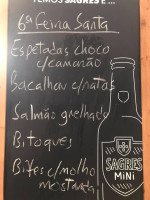 TEMOS SAGRES E ...
6ª Feira Santa
Espetadas choco
c/camarão
Bacalhau c/natas
Salmão grelhado
Bitoques
Bifes c/molho
mostarda
SAGRES
MiNi